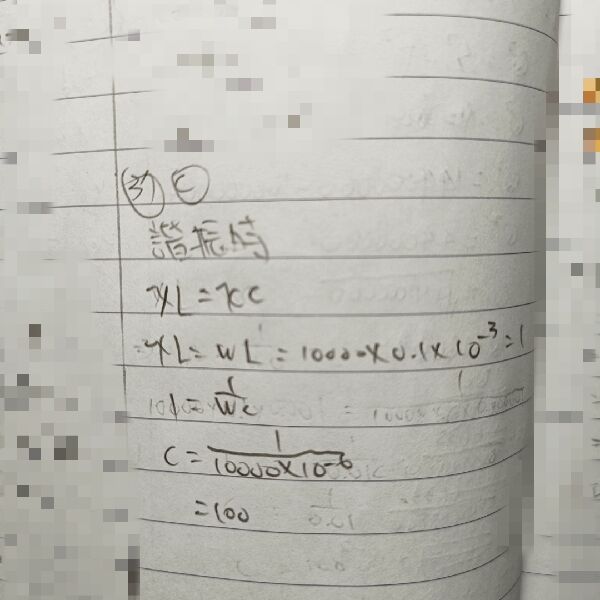 37 C
諧振時
XL = XC
XL = WL = 10000 X 0.1 X 10^-3 = 1
1 = 1/W.C
C = 1/10000X10^-6
= 100